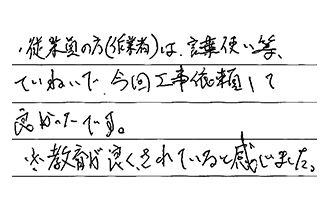 ・従業員の方(作業者)は、言葉使い等、
ていねいで、今回工事依頼して
良かったです。
教育が良くされていると感じました。